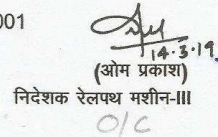 001
14.3.19
(ओम प्रकाश)
निदेशक रेलपथ मशीन-III
O/C